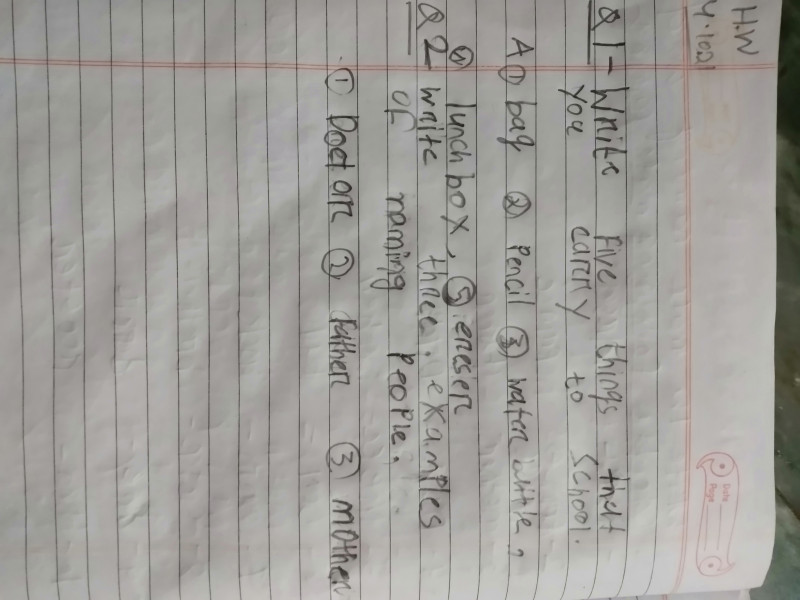 H.W
Date
Page
Q1- Write five things that
you carry to school.
A ① bag ② Pencil ③ water bottle,
④ lunch box, ⑤ ereser
Q2 write three. examples
of naming people.
① Doctor ② father ③ mother